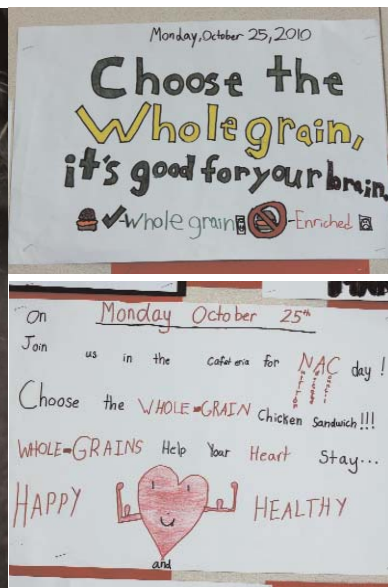 Monday, October 25, 2010
Choose the
Whole grain,
it's good for your brain.
✓-whole grain -Enriched
On Monday October 25th
Join us in the Cafeteria for NAC day!
Choose the WHOLE-GRAIN Chicken Sandwich!!!
WHOLE-GRAINS Help Your Heart Stay...
HAPPY HEALTHY
and